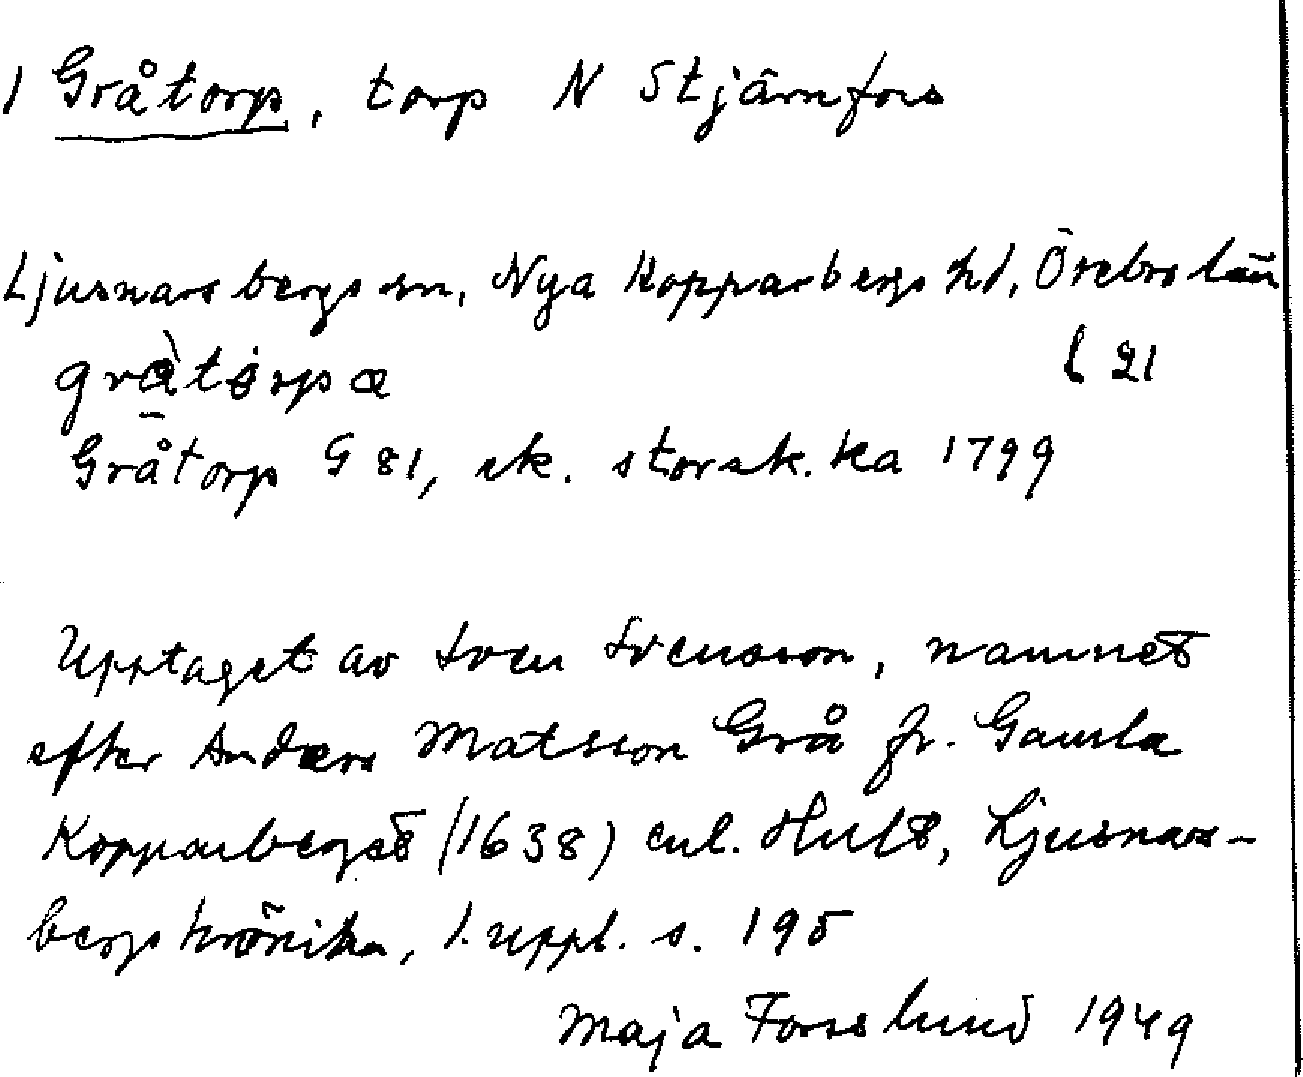 1 Gråtorp, torp N Stjärnfors
Ljusnarsbergs sn, Nya Kopparbergs hd, Örebro län
gràtɷrpa l 21
Gråtorp G 81, sk. storsk. ka 1799
Upptaget av Sven Svensson, namnet
efter Anders Matsson Grå fr. Gamla
Kopparberget (1638) enl. Hult, Ljusnars-
bergs krönika, 1. uppl. s. 195
Maja Forsslund 1949